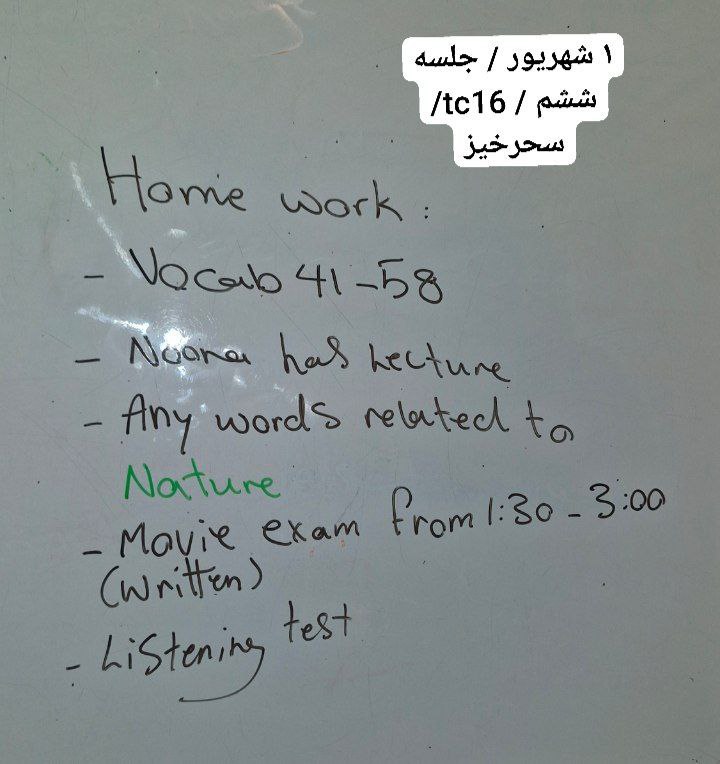 ۱ شهریور / جلسه
ششم / tc16/
سحرخیز
Home work :
- Vocab 41-58
- Noora has Lecture
- Any words related to
Nature
- Movie exam from 1:30 - 3:00
(written)
- Listening test